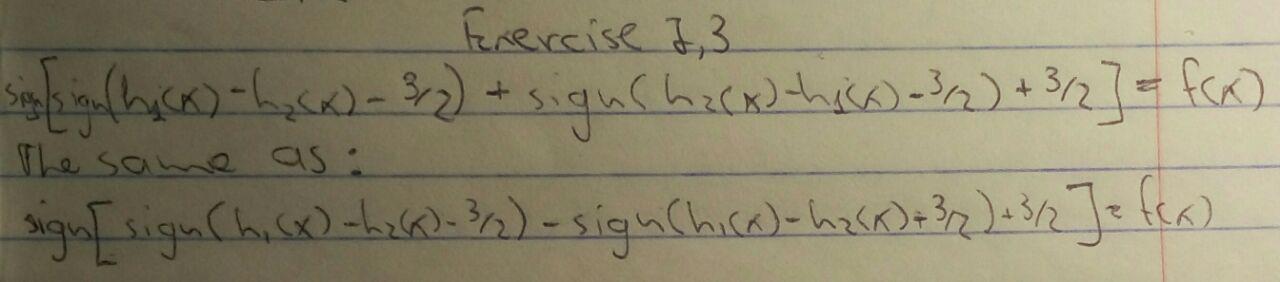 Exercise 7,3
sign[sign(h₁(x) - h₂(x) - 3/2) + sign(h₂(x) - h₁(x) - 3/2) + 3/2] = f(x)
The same as:
sign[sign(h₁(x) - h₂(x) - 3/2) - sign(h₁(x) - h₂(x) + 3/2) + 3/2] = f(x)